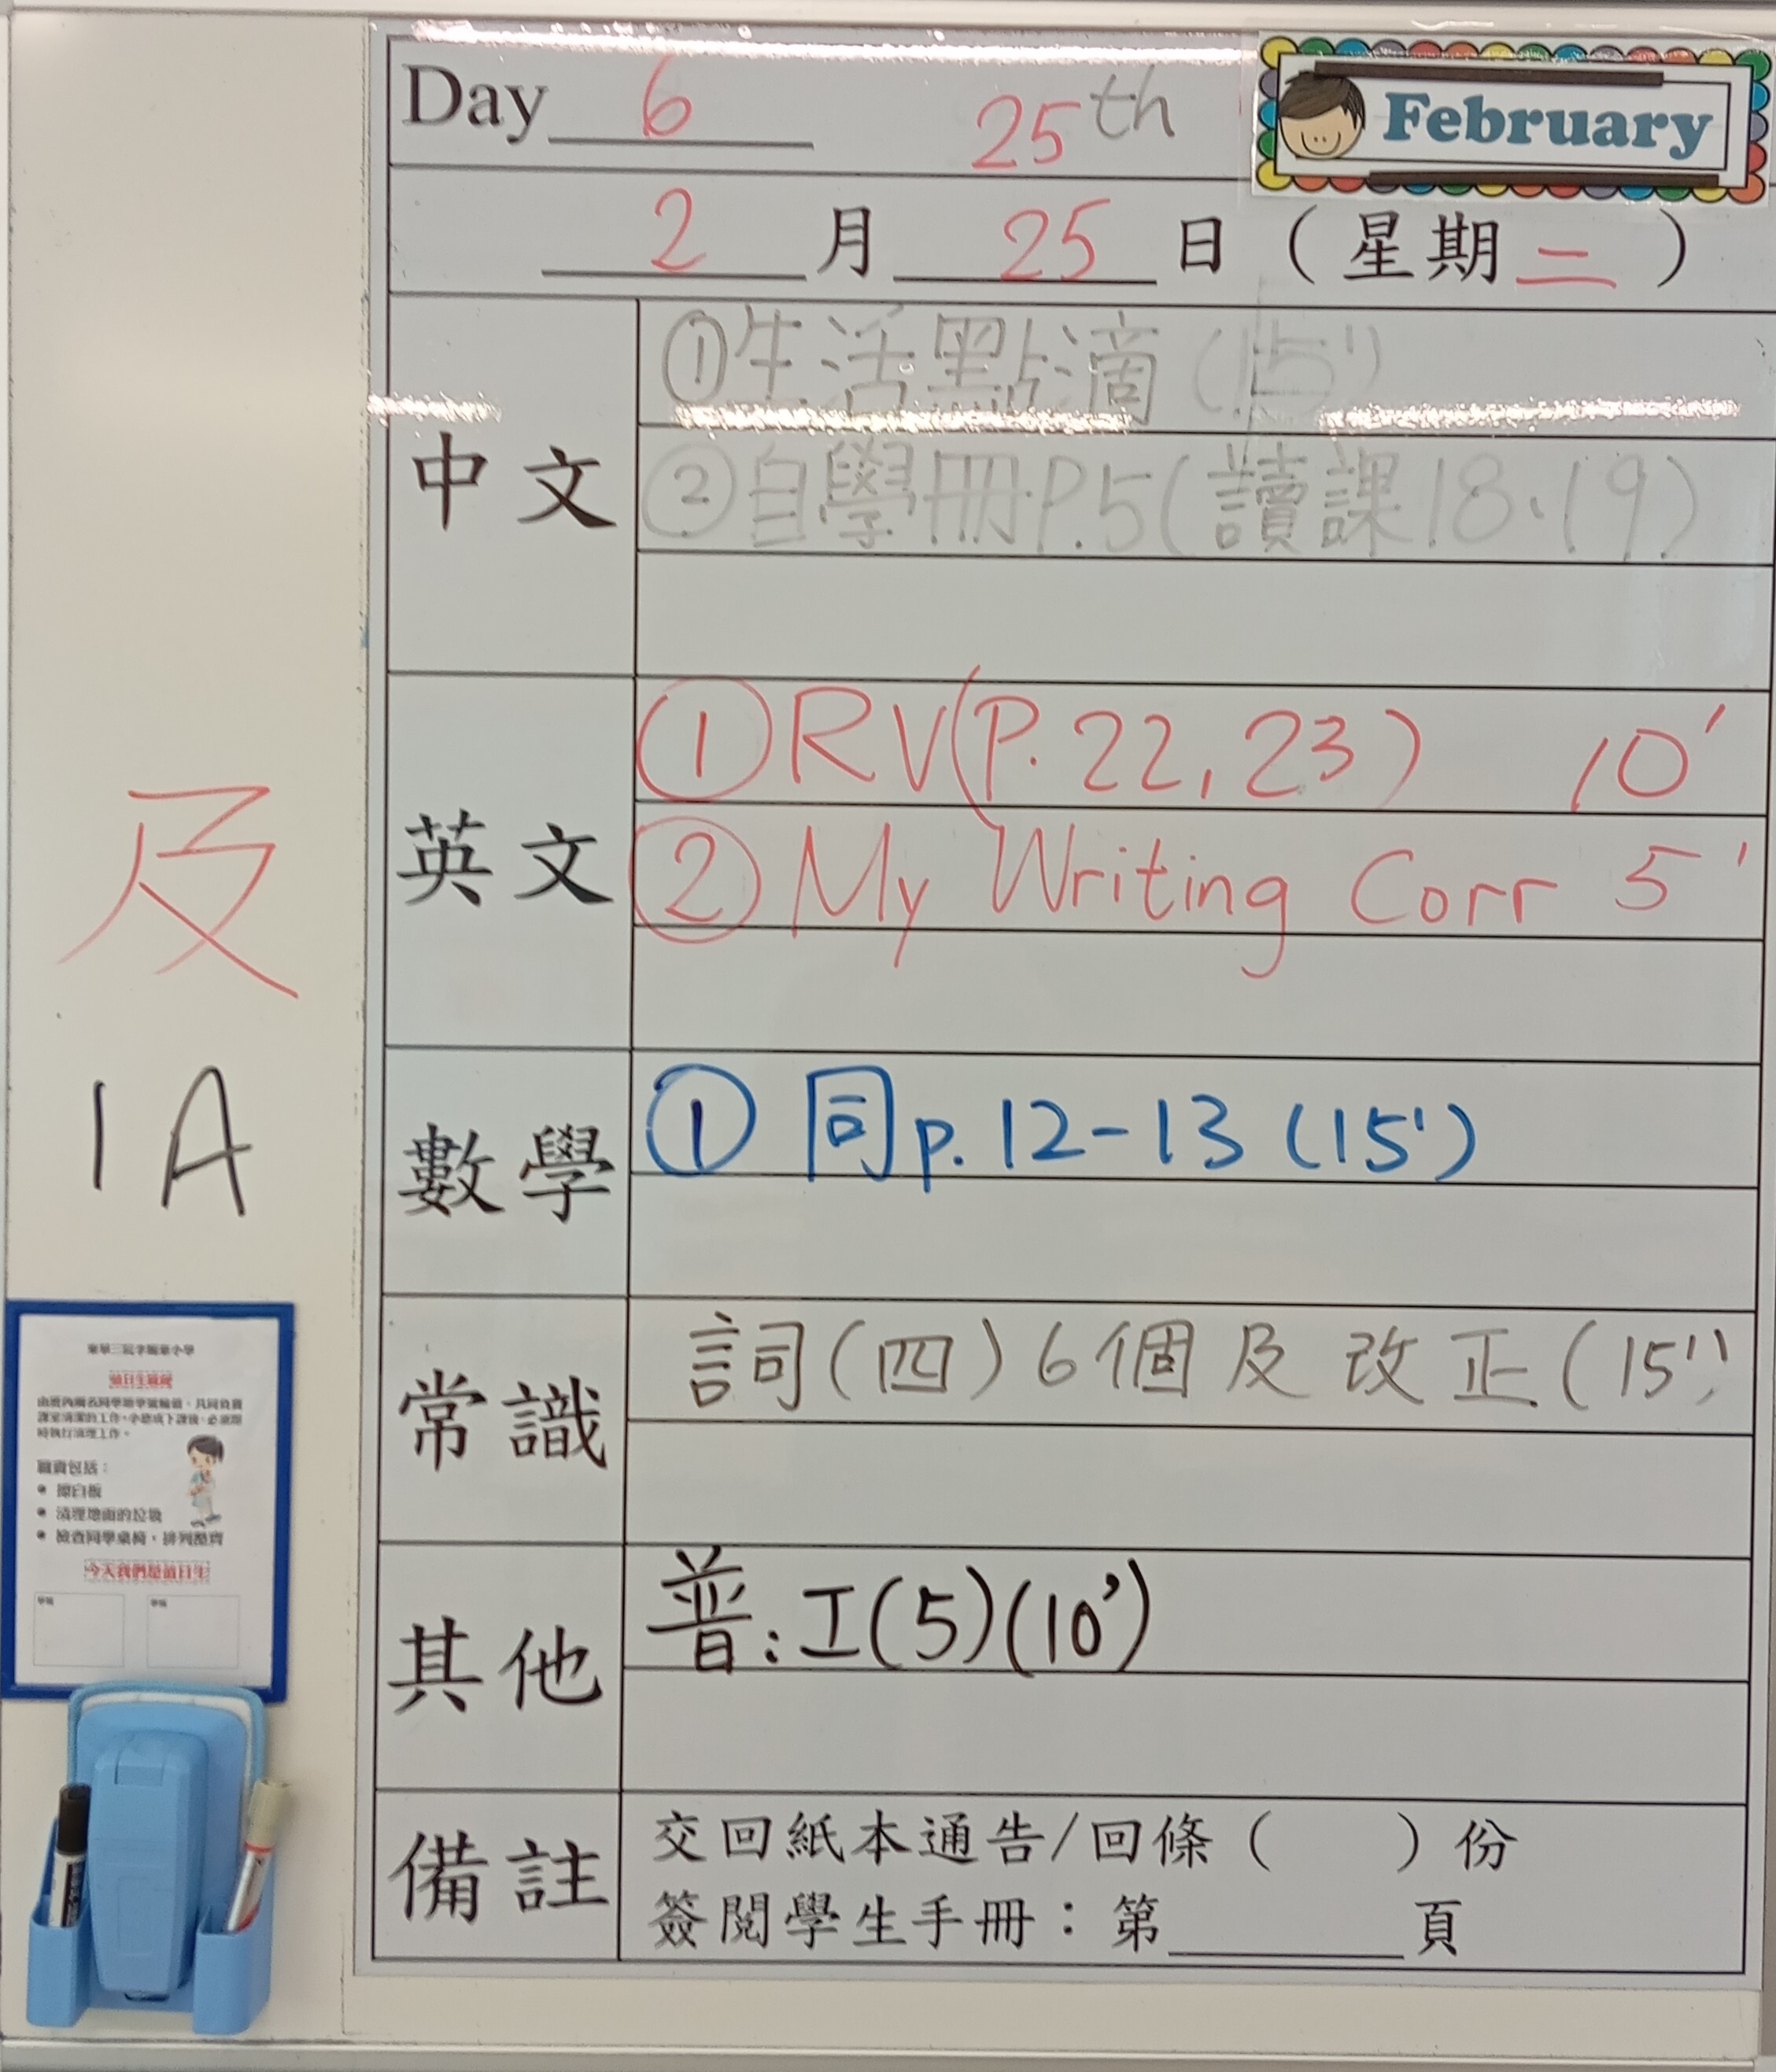 Day 6 25th February
2 月 25 日 ( 星期二 )
中文
①生活點滴 (15')
②自學冊P.5(讀課18、19)
英文
①RV(P.22,23) 10'
②My Writing Corr 5'
數學
① 同p.12-13 (15')
常識
詞(四)6個及改正(15')
其他
普:工(5)(10')
備註
交回紙本通告/回條 ( ) 份
簽閱學生手冊:第______頁
及
1A
值日生職責
職責包括:
• 擦白板
• 清理地面的垃圾
• 檢查同學桌椅,排列整齊
今天我們是值日生